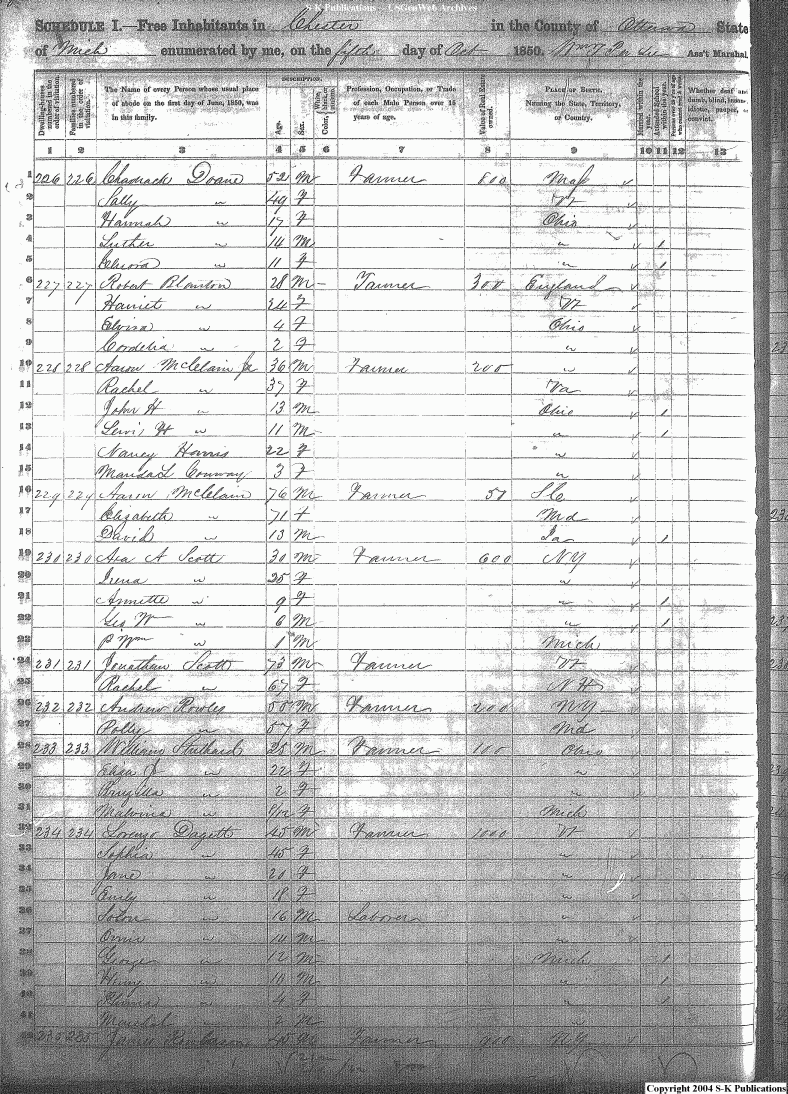 S-K Publications - USGenWeb Archives
SCHEDULE I.—Free Inhabitants in Chester in the County of Ottawa State
of Mich enumerated by me, on the fifth day of Oct 1850. Ass't Marshal
DESCRIPTION.
Dwelling-houses numbered in the order of visitation. Families numbered in the order of visitation. The Name of every Person whose usual place of abode on the first day of June, 1850, was in this family. Age. Sex. Color, White, black, or mulatto. Profession, Occupation, or Trade of each Male Person over 15 years of age. Value of Real Estate owned. PLACE OF BIRTH. Naming the State, Territory, or Country. Married within the year. Attended School within the year. Whether deaf and dumb, blind, insane, idiotic, pauper, or convict.
1 2 3 4 5 6 7 8 9 10 11 12 13
1 226 226 Chadrach Doane 52 M Farmer 800 Mass
2 Sally " 49 F Vt
3 Hannah " 17 F Ohio
4 Luther " 14 M " 1
5 " 11 F " 1
6 227 227 Robert Blanton 28 M Farmer 300 England
7 Harriet " 24 F Vt
8 Elvira " 4 F Ohio
9 Cordelia " 2 F "
10 228 228 Aaron McClain Jr 36 M Farmer 200 "
11 Rachel " 37 F Va
12 John H " 13 M Ohio 1
13 Lewis W " 11 M " 1
14 Nancy Harris 22 F "
15 Conway 3 F "
16 229 229 Aaron McClain 76 M Farmer 50
17 Elizabeth " 71 F Md
18 David " 13 M Ia 1
19 230 230 Asa A Scott 30 M Farmer 600 NY
20 " 25 F "
21 Annette " 9 F " 1
22 Geo W " 6 M " 1
23 " 1 M Mich
24 231 231 Jonathan Scott 73 M Farmer Vt
25 Rachel " 67 F NH
26 232 232 Andrew Rowles M Farmer 200 NY
27 Polly " 57 F Md
28 233 233 William 25 M Farmer 100 Ohio
29 Eliza J " 22 F "
30 " 2 F "
31 Malvina " F Mich
32 234 234 Lorenzo Dagett 45 M Farmer 1000 Vt
33 Sophia " 45 F "
34 Jane " 20 F "
35 Emily " 18 F "
36 Solon " 16 M Laborer "
37 " 14 M "
38 George " 12 M Mich 1
39 Henry " 10 M " 1
40 " 4 F "
41 " 2 M "
42 235 235 James 45 M Farmer 900 NY
Copyright 2004 S-K Publications